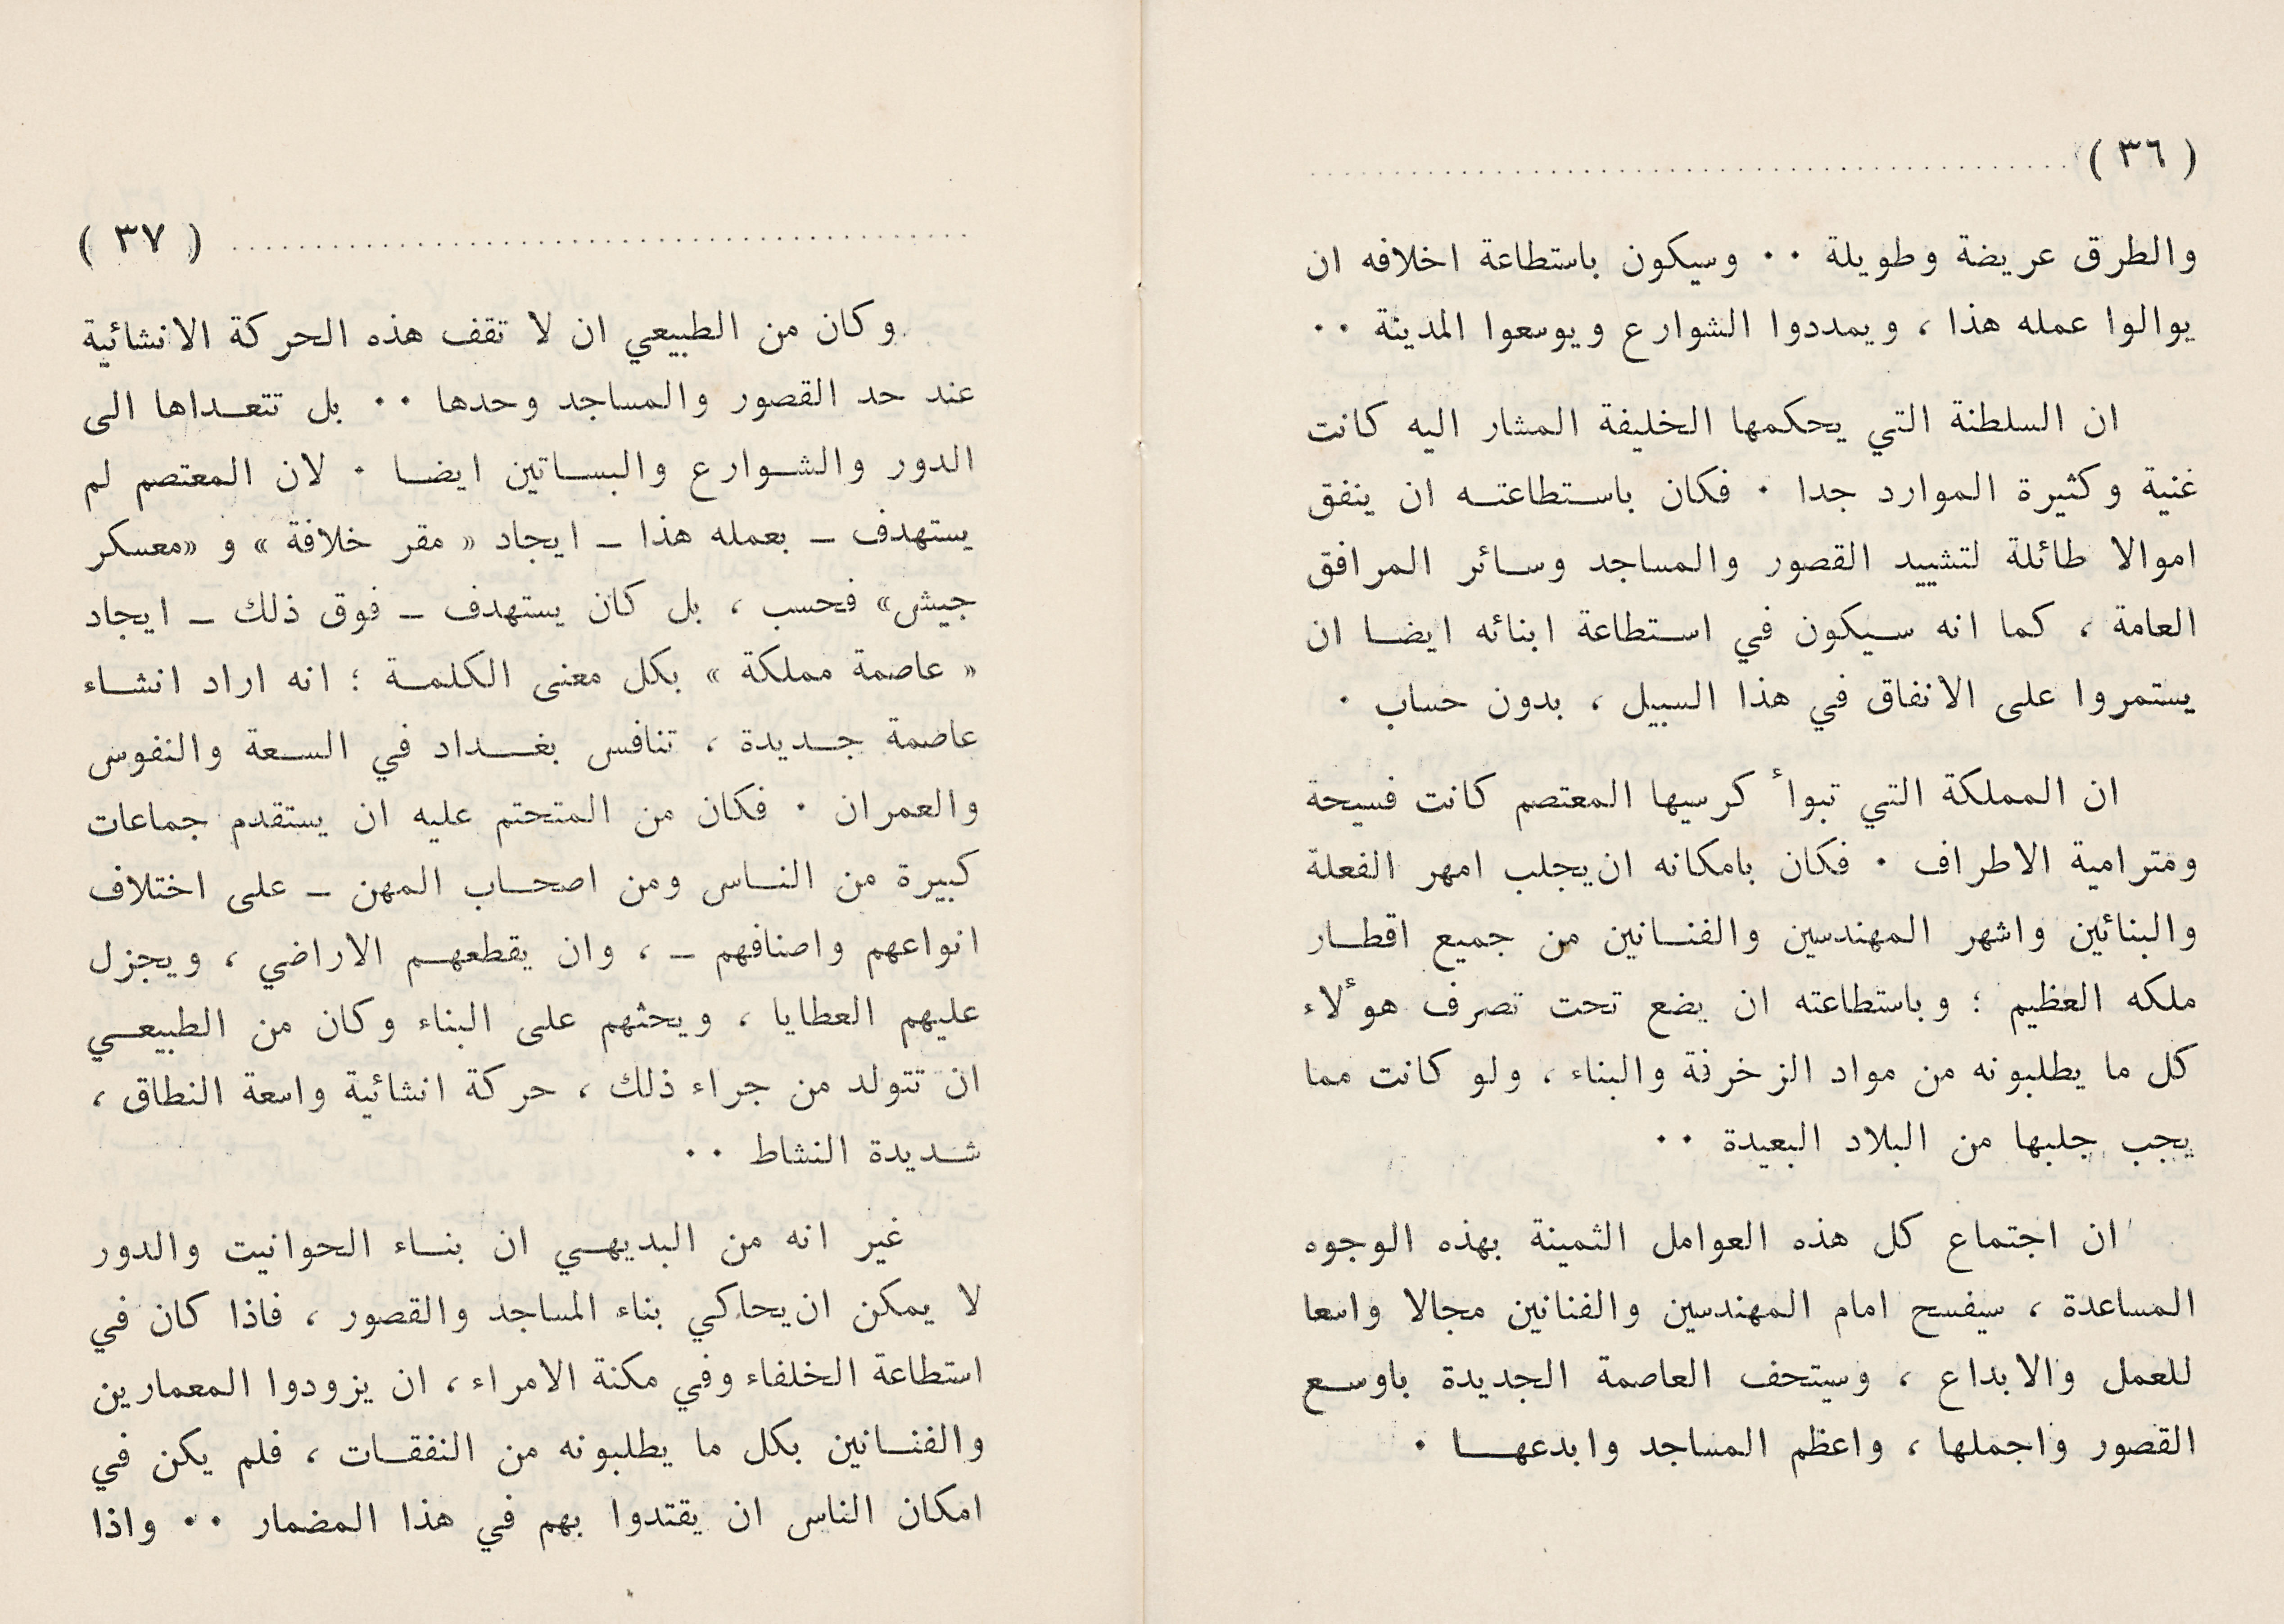 ( ٣٦ )
والطرق عريضة وطويلة ٠٠ وسيكون باستطاعة اخلافه ان
يوالوا عمله هذا ، ويمددوا الشوارع ويوسعوا المدينة ٠٠
ان السلطنة التي يحكمها الخليفة المشار اليه كانت
غنية وكثيرة الموارد جدا ٠ فكان باستطاعته ان ينفق
اموالا طائلة لتشييد القصور والمساجد وسائر المرافق
العامة ، كما انه سيكون في استطاعة ابنائه ايضا ان
يستمروا على الانفاق في هذا السبيل ، بدون حساب ٠
ان المملكة التي تبوأ كرسيها المعتصم كانت فسيحة
ومترامية الاطراف ٠ فكان بامكانه ان يجلب امهر الفعلة
والبنائين واشهر المهندسين والفنانين من جميع اقطار
ملكه العظيم ؛ وباستطاعته ان يضع تحت تصرف هؤلاء
كل ما يطلبونه من مواد الزخرفة والبناء ، ولو كانت مما
يجب جلبها من البلاد البعيدة ٠٠
ان اجتماع كل هذه العوامل الثمينة بهذه الوجوه
المساعدة ، سيفسح امام المهندسين والفنانين مجالا واسعا
للعمل والابداع ، وسيتحف العاصمة الجديدة باوسع
القصور واجملها ، واعظم المساجد وابدعها ٠
( ٣٧ )
وكان من الطبيعي ان لا تقف هذه الحركة الانشائية
عند حد القصور والمساجد وحدها ٠٠ بل تتعداها الى
الدور والشوارع والبساتين ايضا ٠ لان المعتصم لم
يستهدف ـ بعمله هذا ـ ايجاد « مقر خلافة » و «معسكر
جيش» فحسب ، بل كان يستهدف ـ فوق ذلك ـ ايجاد
« عاصمة مملكة » بكل معنى الكلمة ؛ انه اراد انشاء
عاصمة جديدة ، تنافس بغداد في السعة والنفوس
والعمران ٠ فكان من المتحتم عليه ان يستقدم جماعات
كبيرة من الناس ومن اصحاب المهن ـ على اختلاف
انواعهم واصنافهم ـ ، وان يقطعهم الاراضي ، ويجزل
عليهم العطايا ، ويحثهم على البناء وكان من الطبيعي
ان تتولد من جراء ذلك ، حركة انشائية واسعة النطاق ،
شديدة النشاط ٠٠
غير انه من البديهي ان بناء الحوانيت والدور
لا يمكن ان يحاكي بناء المساجد والقصور ، فاذا كان في
استطاعة الخلفاء وفي مكنة الامراء ، ان يزودوا المعمارين
والفنانين بكل ما يطلبونه من النفقات ، فلم يكن في
امكان الناس ان يقتدوا بهم في هذا المضمار ٠٠ واذا